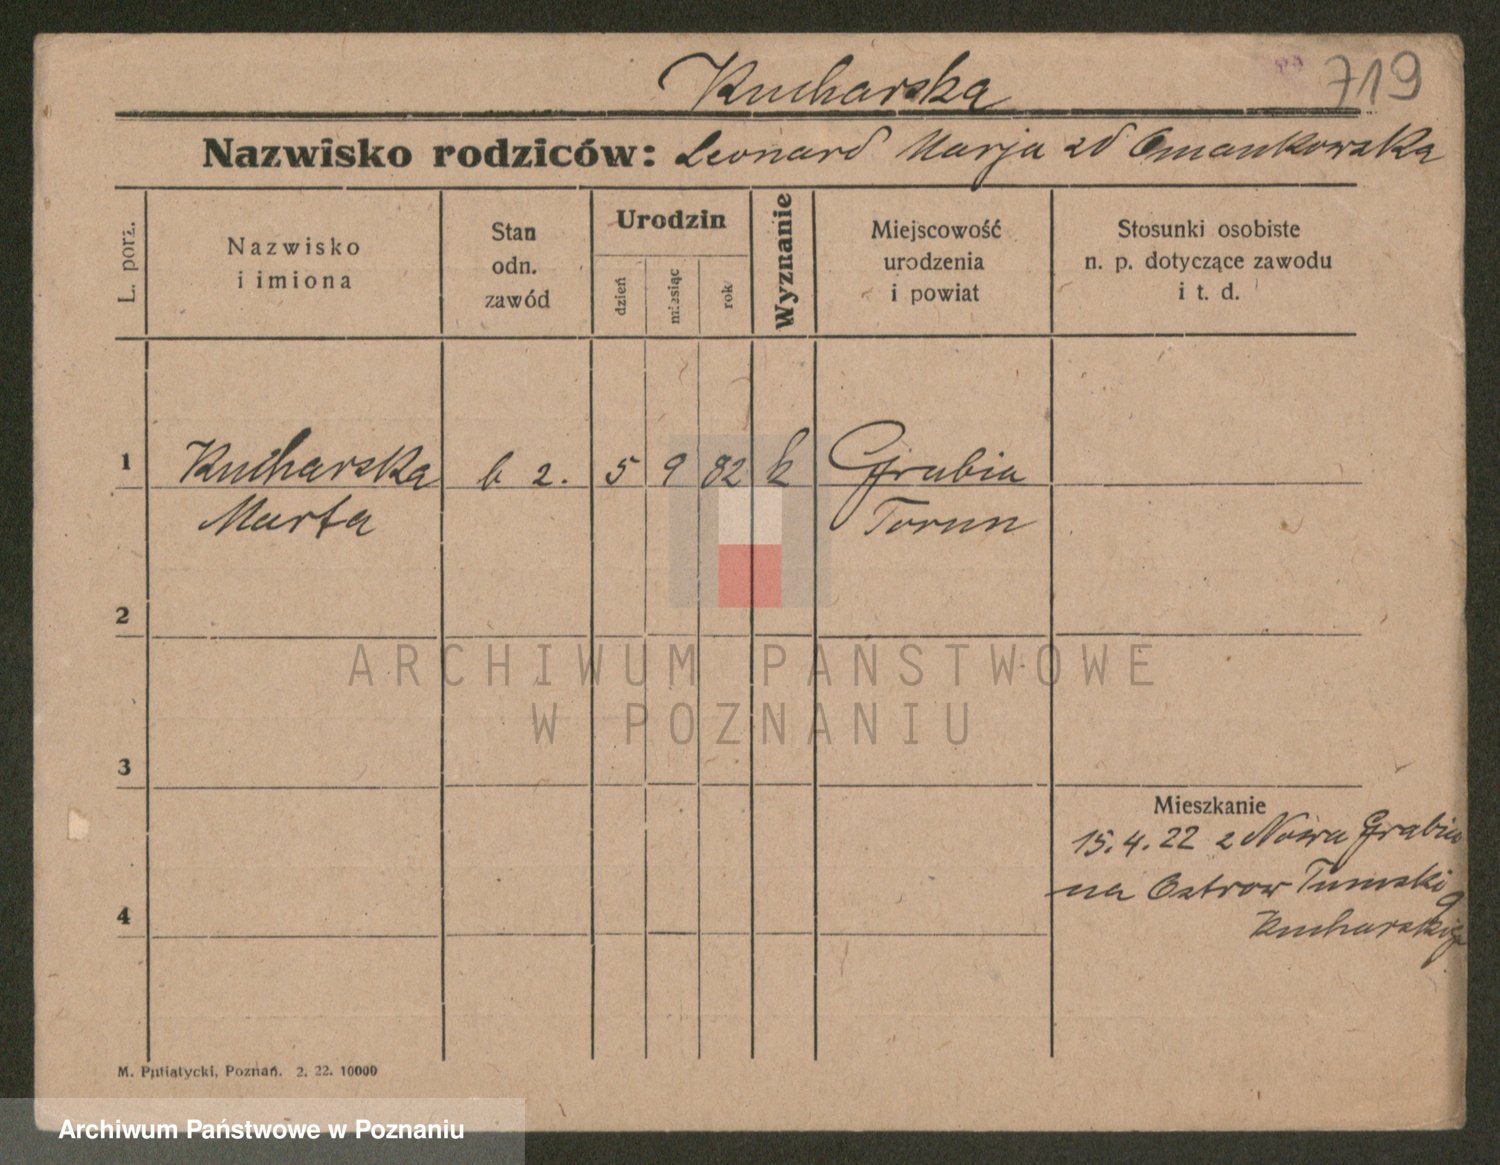 719
Kucharska
Nazwisko rodziców: Leonard Marja zd Omankowska
L. porz.
Nazwisko
i imiona
Stan
odn.
zawód
Urodzin
dzień
miesiąc
rok
Wyznanie
Miejscowość
urodzenia
i powiat
Stosunki osobiste
n. p. dotyczące zawodu
i t. d.
1 Kucharska b z. 5 9 82 k Grabia
Marta Torun
2
3
Mieszkanie
15.4.22 z Nowa Grabia
na Ostrow Tumski 9
Kucharski
4
M. Putiatycki, Poznań. 2. 22. 10000
ARCHIWUM PAŃSTWOWE
W POZNANIU
Archiwum Państwowe w Poznaniu